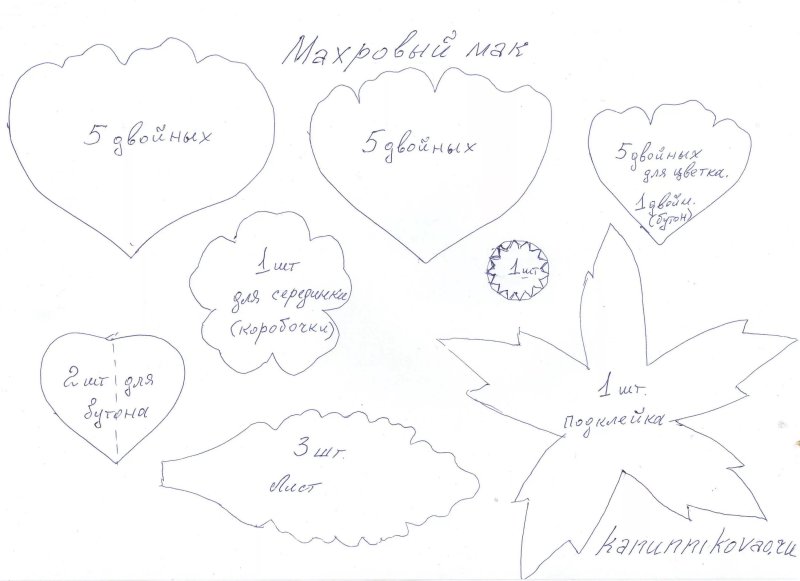 Махровый мак
5 двойных
5 двойных
5 двойных
для цветка.
1 двойн.
(бутон)
1 шт
для серединка
(коробочки)
1 шт
2 шт для
бутона
1 шт.
подклейка
3 шт.
Лист
kanunnikovao.ru